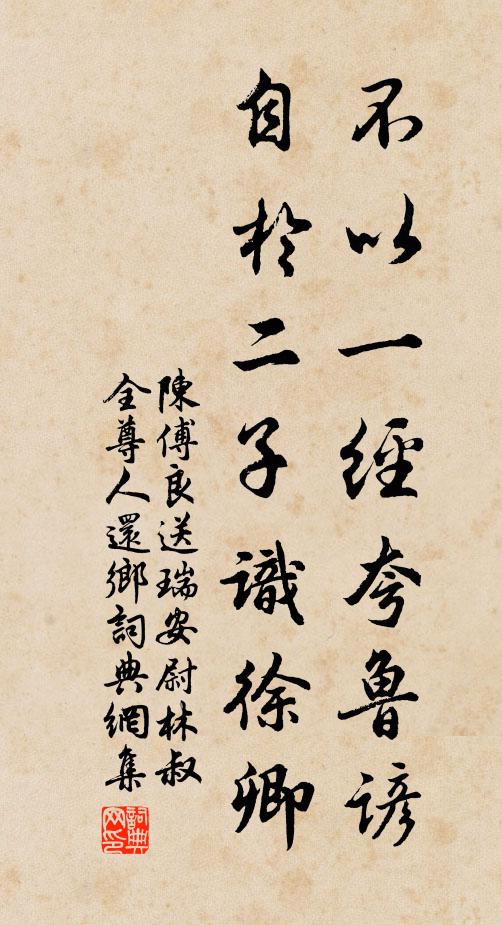 不以一經夸魯諺
自於二子識徐卿
陳傅良送瑞安尉林叔
全尊人還鄉詞典網集
詞典
网印